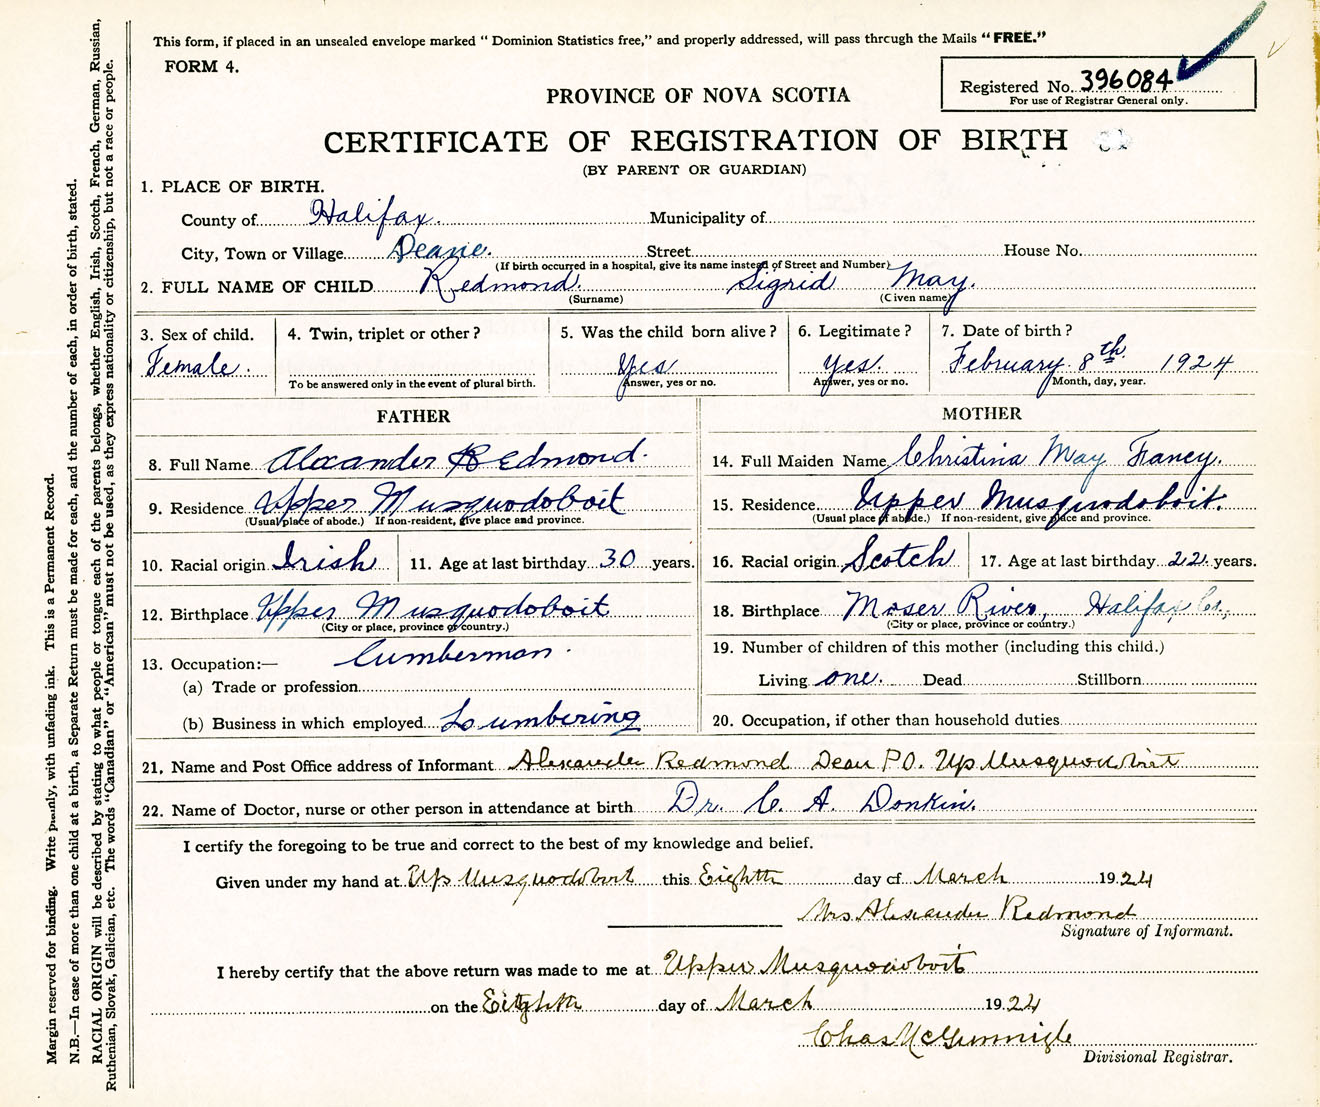 This form, if placed in an unsealed envelope marked "Dominion Statistics free," and properly addressed, will pass through the Mails "FREE."
FORM 4.
Registered No. 396084
For use of Registrar General only.
PROVINCE OF NOVA SCOTIA
CERTIFICATE OF REGISTRATION OF BIRTH
(BY PARENT OR GUARDIAN)
1. PLACE OF BIRTH.
County of Halifax. Municipality of
City, Town or Village Deane. Street House No.
(If birth occurred in a hospital, give its name instead of Street and Number)
2. FULL NAME OF CHILD Redmond. Sigrid May.
(Surname) (Given name)
3. Sex of child. 4. Twin, triplet or other? 5. Was the child born alive? 6. Legitimate? 7. Date of birth?
Female. Yes Yes. February 8th. 1924
To be answered only in the event of plural birth. Answer, yes or no. Answer, yes or no. Month, day, year.
FATHER MOTHER
8. Full Name Alexander Redmond. 14. Full Maiden Name Christina May Fancy.
9. Residence Upper Musquodoboit 15. Residence Upper Musquodoboit.
(Usual place of abode.) If non-resident, give place and province. (Usual place of abode.) If non-resident, give place and province.
10. Racial origin Irish 11. Age at last birthday 30 years. 16. Racial origin Scotch 17. Age at last birthday 22 years.
12. Birthplace Upper Musquodoboit 18. Birthplace Moser River, Halifax Co.,
(City or place, province or country.) (City or place, province or country.)
13. Occupation:— Lumberman. 19. Number of children of this mother (including this child.)
(a) Trade or profession Living one. Dead Stillborn
(b) Business in which employed Lumbering 20. Occupation, if other than household duties
21, Name and Post Office address of Informant Alexander Redmond Dean P.O. Up Musquodoboit
22. Name of Doctor, nurse or other person in attendance at birth Dr. C. A. Donkin.
I certify the foregoing to be true and correct to the best of my knowledge and belief.
Given under my hand at Up Musquodoboit this Eighth day of March 1924
Mrs Alexander Redmond
Signature of Informant.
I hereby certify that the above return was made to me at Upper Musquodoboit
on the Eighth day of March 1924
Chas McGunnigle
Divisional Registrar.
Margin reserved for binding. Write plainly, with unfading ink. This is a Permanent Record.
N.B.—In case of more than one child at a birth, a Separate Return must be made for each, and the number of each, in order of birth, stated.
RACIAL ORIGIN will be described by stating to what people or tongue each of the parents belongs, whether English, Irish, Scotch, French, German, Russian,
Ruthenian, Slovak, Galician, etc. The words "Canadian" or "American" must not be used, as they express nationality or citizenship, but not a race or people.